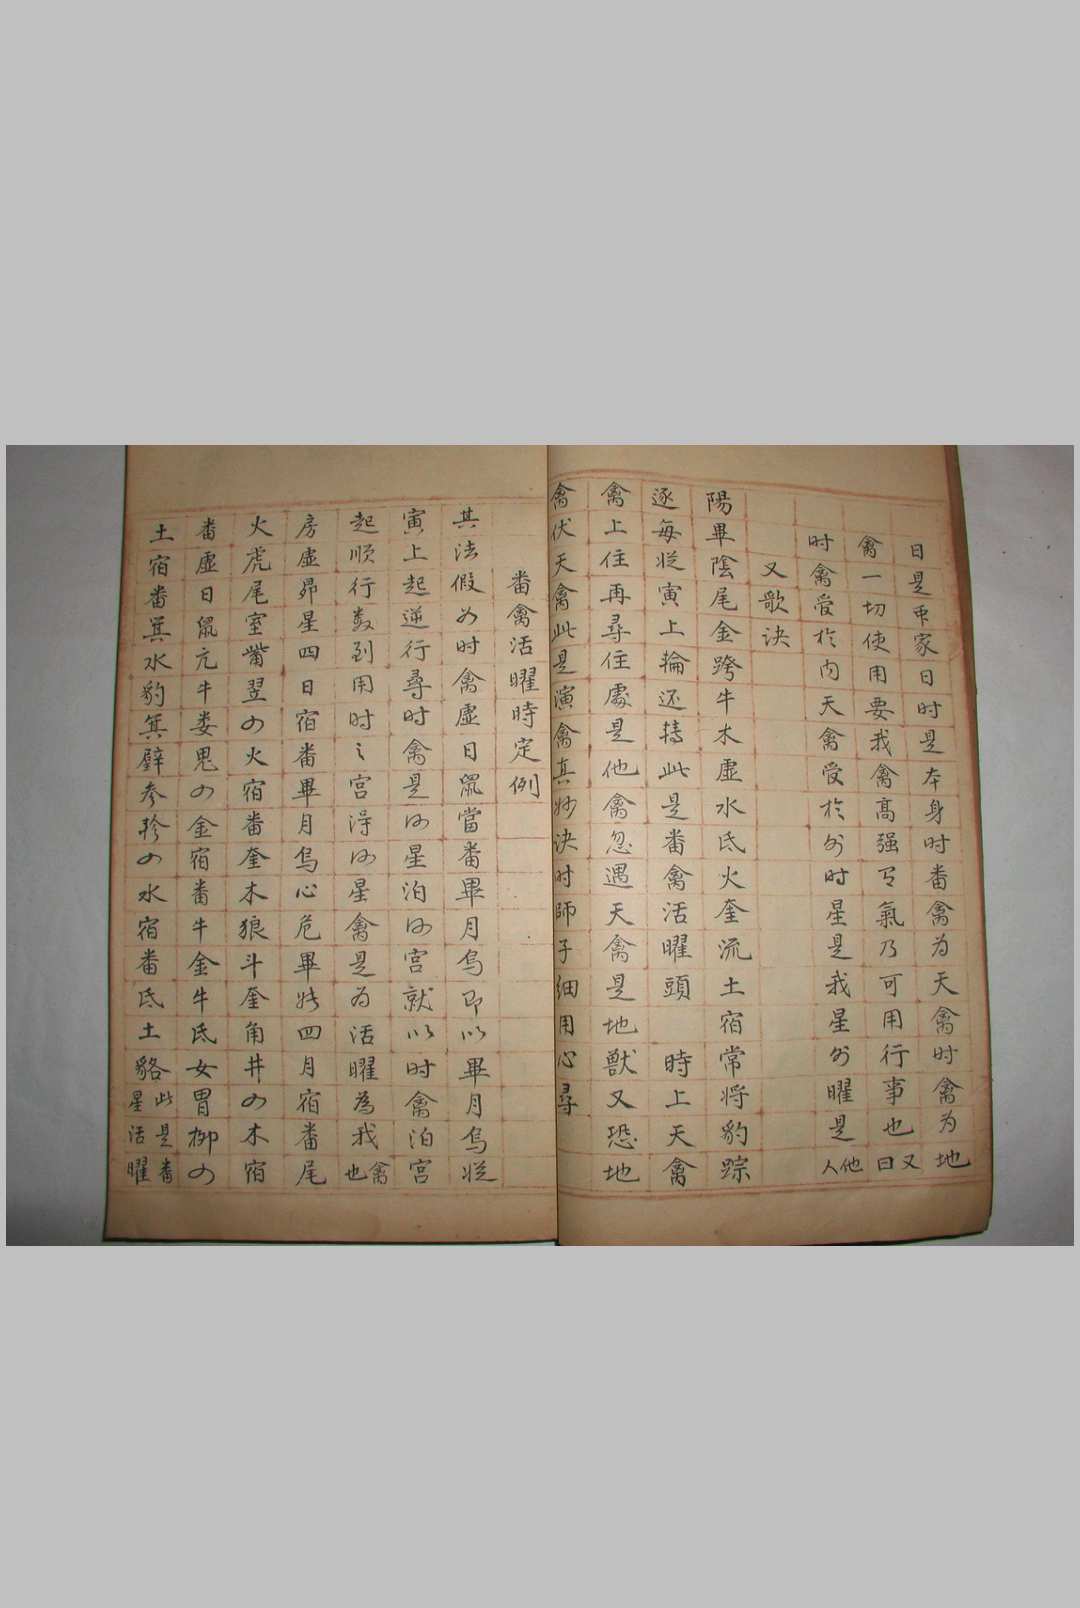 日是用家日时是本身时番禽为天禽时禽为地
禽一切使用要我禽高强有氣乃可用行事也又曰
时禽受於内天禽受於外时星是我星外曜是他人
又歌诀
陽畢陰尾金跨牛木虚水氐火奎流土宿常将豹踪
逐每從寅上輪还轉此是番禽活曜頭 時上天禽
禽上住再尋住處是他禽忽遇天禽是地獸又恐地
禽伏天禽此是演禽真妙決时師子细用心尋
番禽活曜時定例
其法假如时禽虚日鼠當番畢月烏即以畢月烏從
寅上起逆行尋时禽是何星泊何宫就以时禽泊宫
起順行数到用时之宫得何星禽是为活曜為我禽也
房虚昴星四日宿番畢月烏心危畢张四月宿番尾
火虎尾室觜翌四火宿番奎木狼斗奎角井四木宿
番虚日鼠亢牛娄鬼四金宿番牛金牛氐女胃柳四
土宿番箕水豹箕壁参轸四水宿番氐土貉此是番星活曜